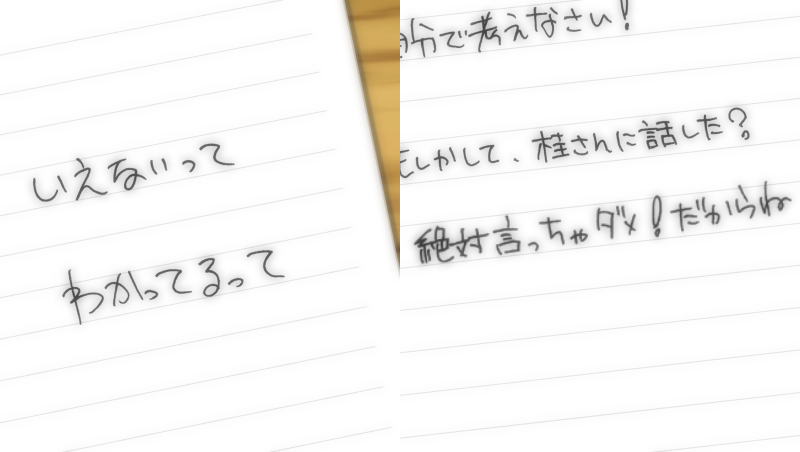 いえないって
わかってるって
自分で考えなさい!
もしかして、桂さんに話した?
絶対言っちゃダメ!だからね